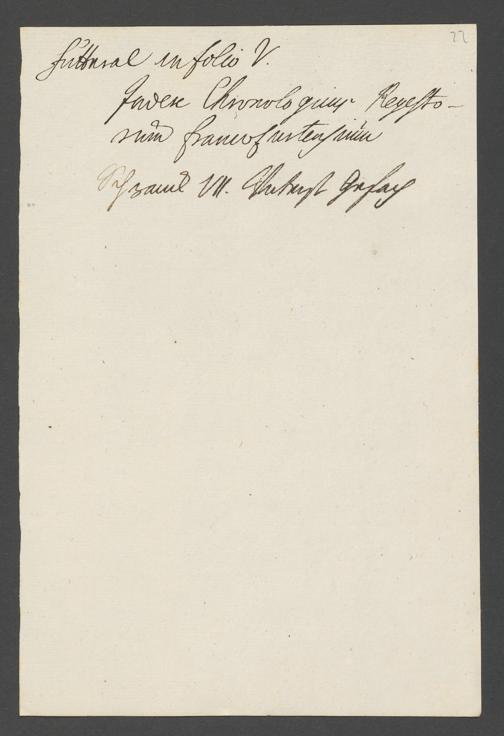 22
Futteral in folio V.
Index Chronologicus Regesto-
rum francofurtensium
Schranck VII. Unterst Gefach